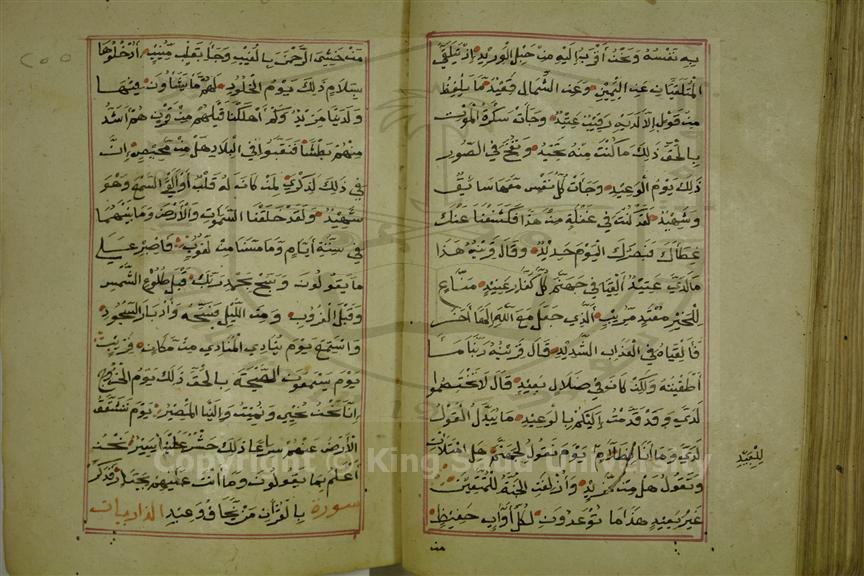 به نفسه ونحن أقرب اليه من حبل الوريد إذ يتلقى
المتلقيان عن اليمين وعن الشمال قعيد ما يلفظ
من قول إلا لديه رقيب عتيد وجاءت سكرة الموت
بالحق ذلك ما كنت منه تحيد ونفخ في الصور
ذلك يوم الوعيد وجاءت كل نفس معها سائق
وشهيد لقد كنت في غفلة من هذا فكشفنا عنك
غطاءك فبصرك اليوم حديد وقال قرينه هذا
ما لدي عتيد ألقيا في جهنم كل كفار عنيد مناع
للخير معتد مريب الذي جعل مع الله إلها آخر
فألقياه في العذاب الشديد قال قرينه ربنا ما
أطغيته ولكن كان في ضلال بعيد قال لا تختصموا
لدي وقد قدمت إليكم بالوعيد ما يبدل القول
لدي وما أنا بظلام يوم نقول لجهنم هل امتلأت
للعبيد
وتقول هل من مزيد وأزلفت الجنة للمتقين
غير بعيد هذا ما توعدون لكل أواب حفيظ
من خشي الرحمن بالغيب وجاء بقلب منيب ادخلوها
بسلام ذلك يوم الخلود لهم ما يشاؤن فيها
ولدينا مزيد وكم أهلكنا قبلهم من قرن هم أشد
منهم بطشا فنقبوا في البلاد هل من محيص إن
في ذلك لذكرى لمن كان له قلب أو ألقى السمع وهو
شهيد ولقد خلقنا السموات والأرض وما بينهما
في ستة أيام وما مسنا من لغوب فاصبر على
ما يقولون وسبح بحمد ربك قبل طلوع الشمس
وقبل الغروب ومن الليل فسبحه وأدبار السجود
واستمع يوم ينادي المنادي من مكان قريب
يوم يسمعون الصيحة بالحق ذلك يوم الخروج
إنا نحن نحيي ونميت وإلينا المصير يوم تشقق
الأرض عنهم سراعا ذلك حشر علينا يسير نحن
أعلم بما يقولون وما أنت عليهم بجبار فذكر
سورة بالقرآن من يخاف وعيد الذاريات
Copyright © King Saud University